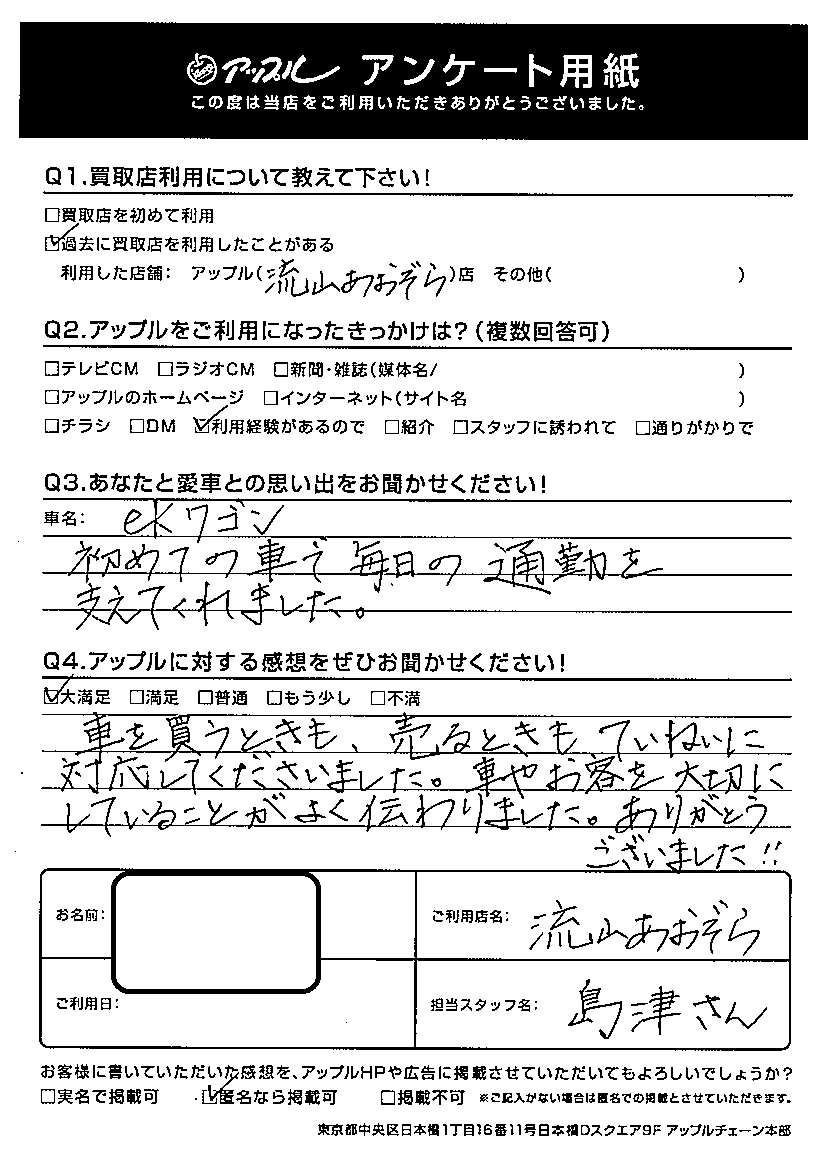 アップル アンケート用紙
この度は当店をご利用いただきありがとうございました。
Q1.買取店利用について教えて下さい!
□買取店を初めて利用
☑過去に買取店を利用したことがある
利用した店舗: アップル(流山あおぞら)店 その他( )
Q2.アップルをご利用になったきっかけは?(複数回答可)
□テレビCM □ラジオCM □新聞・雑誌(媒体名/ )
□アップルのホームページ □インターネット(サイト名 )
□チラシ □DM ☑利用経験があるので □紹介 □スタッフに誘われて □通りがかりで
Q3.あなたと愛車との思い出をお聞かせください!
車名: ekワゴン
初めての車で毎日の通勤を
支えてくれました。
Q4.アップルに対する感想をぜひお聞かせください!
☑大満足 □満足 □普通 □もう少し □不満
車を買うときも、売るときもていねいに
対応してくださいました。車やお客を大切に
していることがよく伝わりました。ありがとう
ございました!!
お名前:
ご利用店名: 流山あおぞら
ご利用日:
担当スタッフ名: 島津さん
お客様に書いていただいた感想を、アップルHPや広告に掲載させていただいてもよろしいでしょうか?
□実名で掲載可 ☑匿名なら掲載可 □掲載不可 ※ご記入がない場合は匿名での掲載とさせていただきます。
東京都中央区日本橋1丁目16番11号日本橋Dスクエア9F アップルチェーン本部